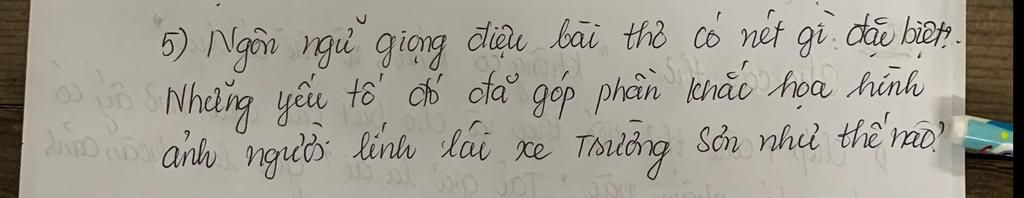 5) Ngôn ngữ giọng điệu bài thơ có nét gì đặc biệt?.
Những yếu tố đó đã góp phần khắc họa hình
ảnh người lính lái xe Trường Sơn như thế nào?